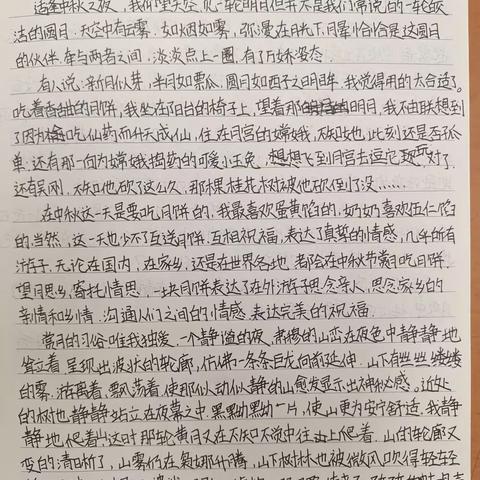 适逢中秋之夜，我仰望天空，见一轮明月但并不是我们常说的一轮皎
洁的圆月。天空中有云雾，如烟如雾，弥漫在月光下，月晕恰恰是这圆月
的伙伴，牵与两者之间，淡淡点上一圈，有了万娇姿态。
有人说：新月似芽，半月如栗瓜，圆月如西子之明眸。我觉得用的太合适了。
吃着香甜的月饼，我坐在阳台的椅子上，望着那明月，我不由联想到
了因为吃仙药而升天成仙，住在月宫的嫦娥，不知她此刻还是否孤
单，还有那一向为嫦娥捣药的可爱小玉兔，想想飞到月宫去逗它玩对了，
还有吴刚，不知他砍了这么久，那棵桂花树被他砍倒了没……
在中秋这一天是要吃月饼的，我最喜欢蛋黄馅的，奶奶喜欢五仁馅
的当然，这一天也少不了互送月饼，互相祝福，表达了真挚的情感，几乎所有
游子，无论在国内，在家乡，还是在世界各地，都会在中秋节赏月吃月饼，
望月思乡，寄托情思，一块月饼表达了在外游子思念亲人，思念家乡的
亲情和乡情，沟通人们之间的情感，表达完美的祝福。
赏月的习俗唯我独爱，一个静谧的夜，常德的山峦在夜色中静静地
耸立着，呈现出波状的轮廓，仿佛一条条巨龙向前延伸，山下有丝丝缕缕
的雾，游离着，飘荡着，使那似动似静的山愈发显示出神秘感。近处
的树也静静站立在夜幕之中，黑黝黝一片，使山更为安宁舒适。我静
静地爬着山这时那轮黄月又在不知不觉中往上爬着，山的轮廓又
变的清晰了，山雾仍在氤氲升腾，山下树林也被微风吹得轻轻